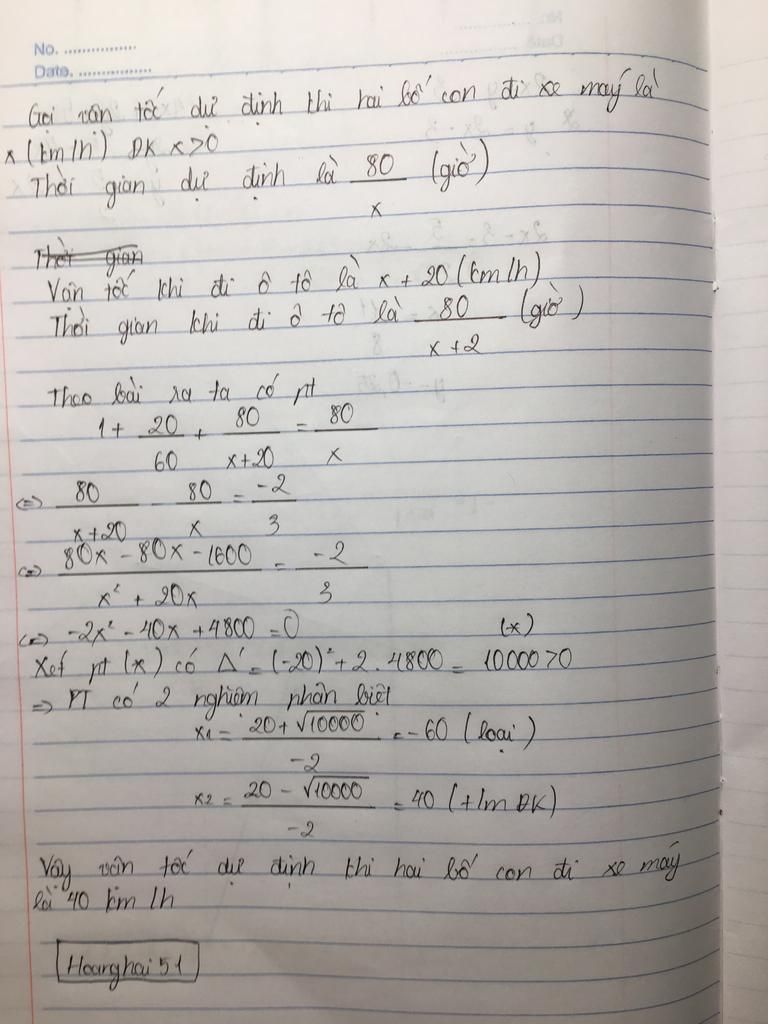 No. ................
Date. ................
Gọi vận tốc dự định khi hai bố con đi xe máy là
x (km/h) ĐK x>0
Thời gian dự định là 80/x (giờ)
Thời gian
Vận tốc khi đi ô tô là x + 20 (km/h)
Thời gian khi đi ô tô là 80/(x+2) (giờ)
Theo bài ra ta có pt
1 + 20/60 + 80/(x+20) = 80/x
<=> 80/(x+20) - 80/x = -2/3
<=> (80x - 80x - 1600)/(x² + 20x) = -2/3
<=> -2x² - 40x + 4800 = 0 (*)
Xét pt (*) có Δ' = (-20)² + 2.4800 = 10000>0
=> PT có 2 nghiệm phân biệt
x1 = (20+√10000)/-2 = -60 (loại)
x2 = (20 - √10000)/-2 = 40 (t/m ĐK)
Vậy vận tốc dự định khi hai bố con đi xe máy
là 40 km/h
Hoanghai51